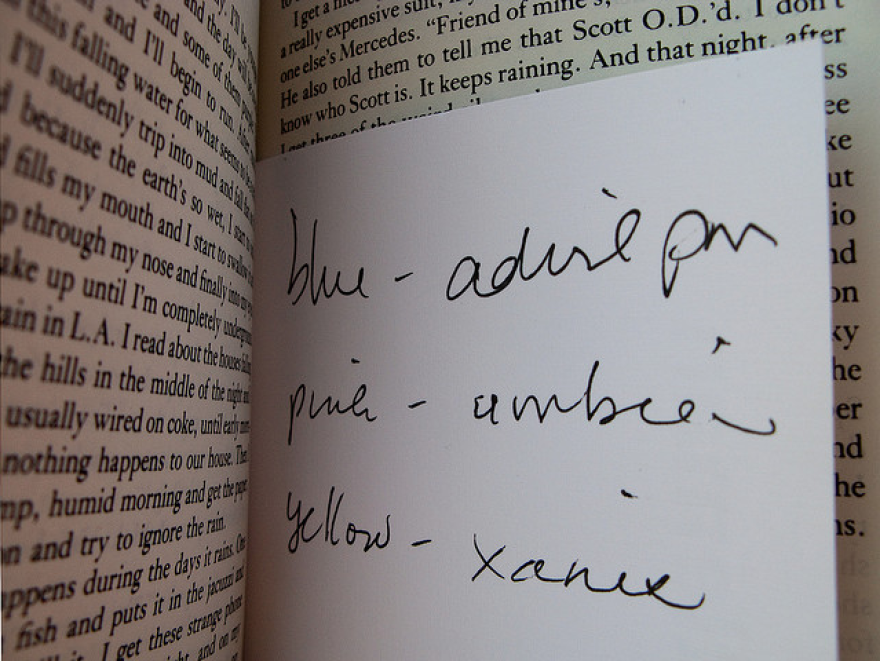 and the day will
and I'll begin to run.
this falling water for what seems
I'll suddenly trip into mud and fall
because the earth's so wet, I start to
fills my mouth and I start to swallow
through my nose and finally into my
up until I'm completely underground
ain in L.A. I read about the houses falling
the hills in the middle of the night and
usually wired on coke, until early
nothing happens to our house. Then
mp, humid morning and get the paper
n and try to ignore the rain.
appens during the days it rains. One
fish and puts it in the jacuzzi and
I get these strange phone
and on my
I get a
a really expensive suit,
one else's Mercedes. "Friend of mine's,
He also told them to tell me that Scott O.D.'d. I don't
know who Scott is. It keeps raining. And that night, after
I get three of the weird
ss
ee
ke
ut
io
nd
on
ky
he
er
nd
he
ns.
blue - advil pm
pink - ambien
yellow - xanex